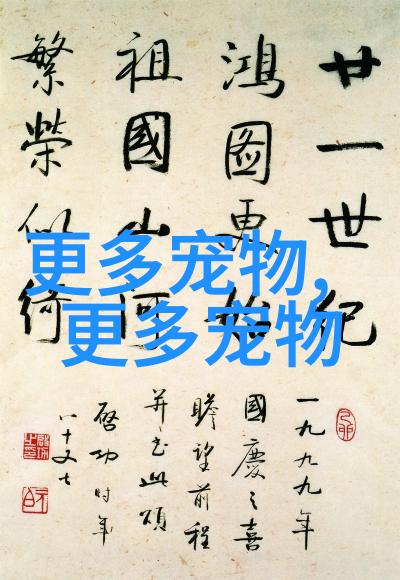 廿一世紀
鴻圖更始
祖國山河
繁榮似綺
一九九九年
國慶之喜
瞻望前程
并书此頌
啓功时年
八十又七
更多宠物,
更多宠物